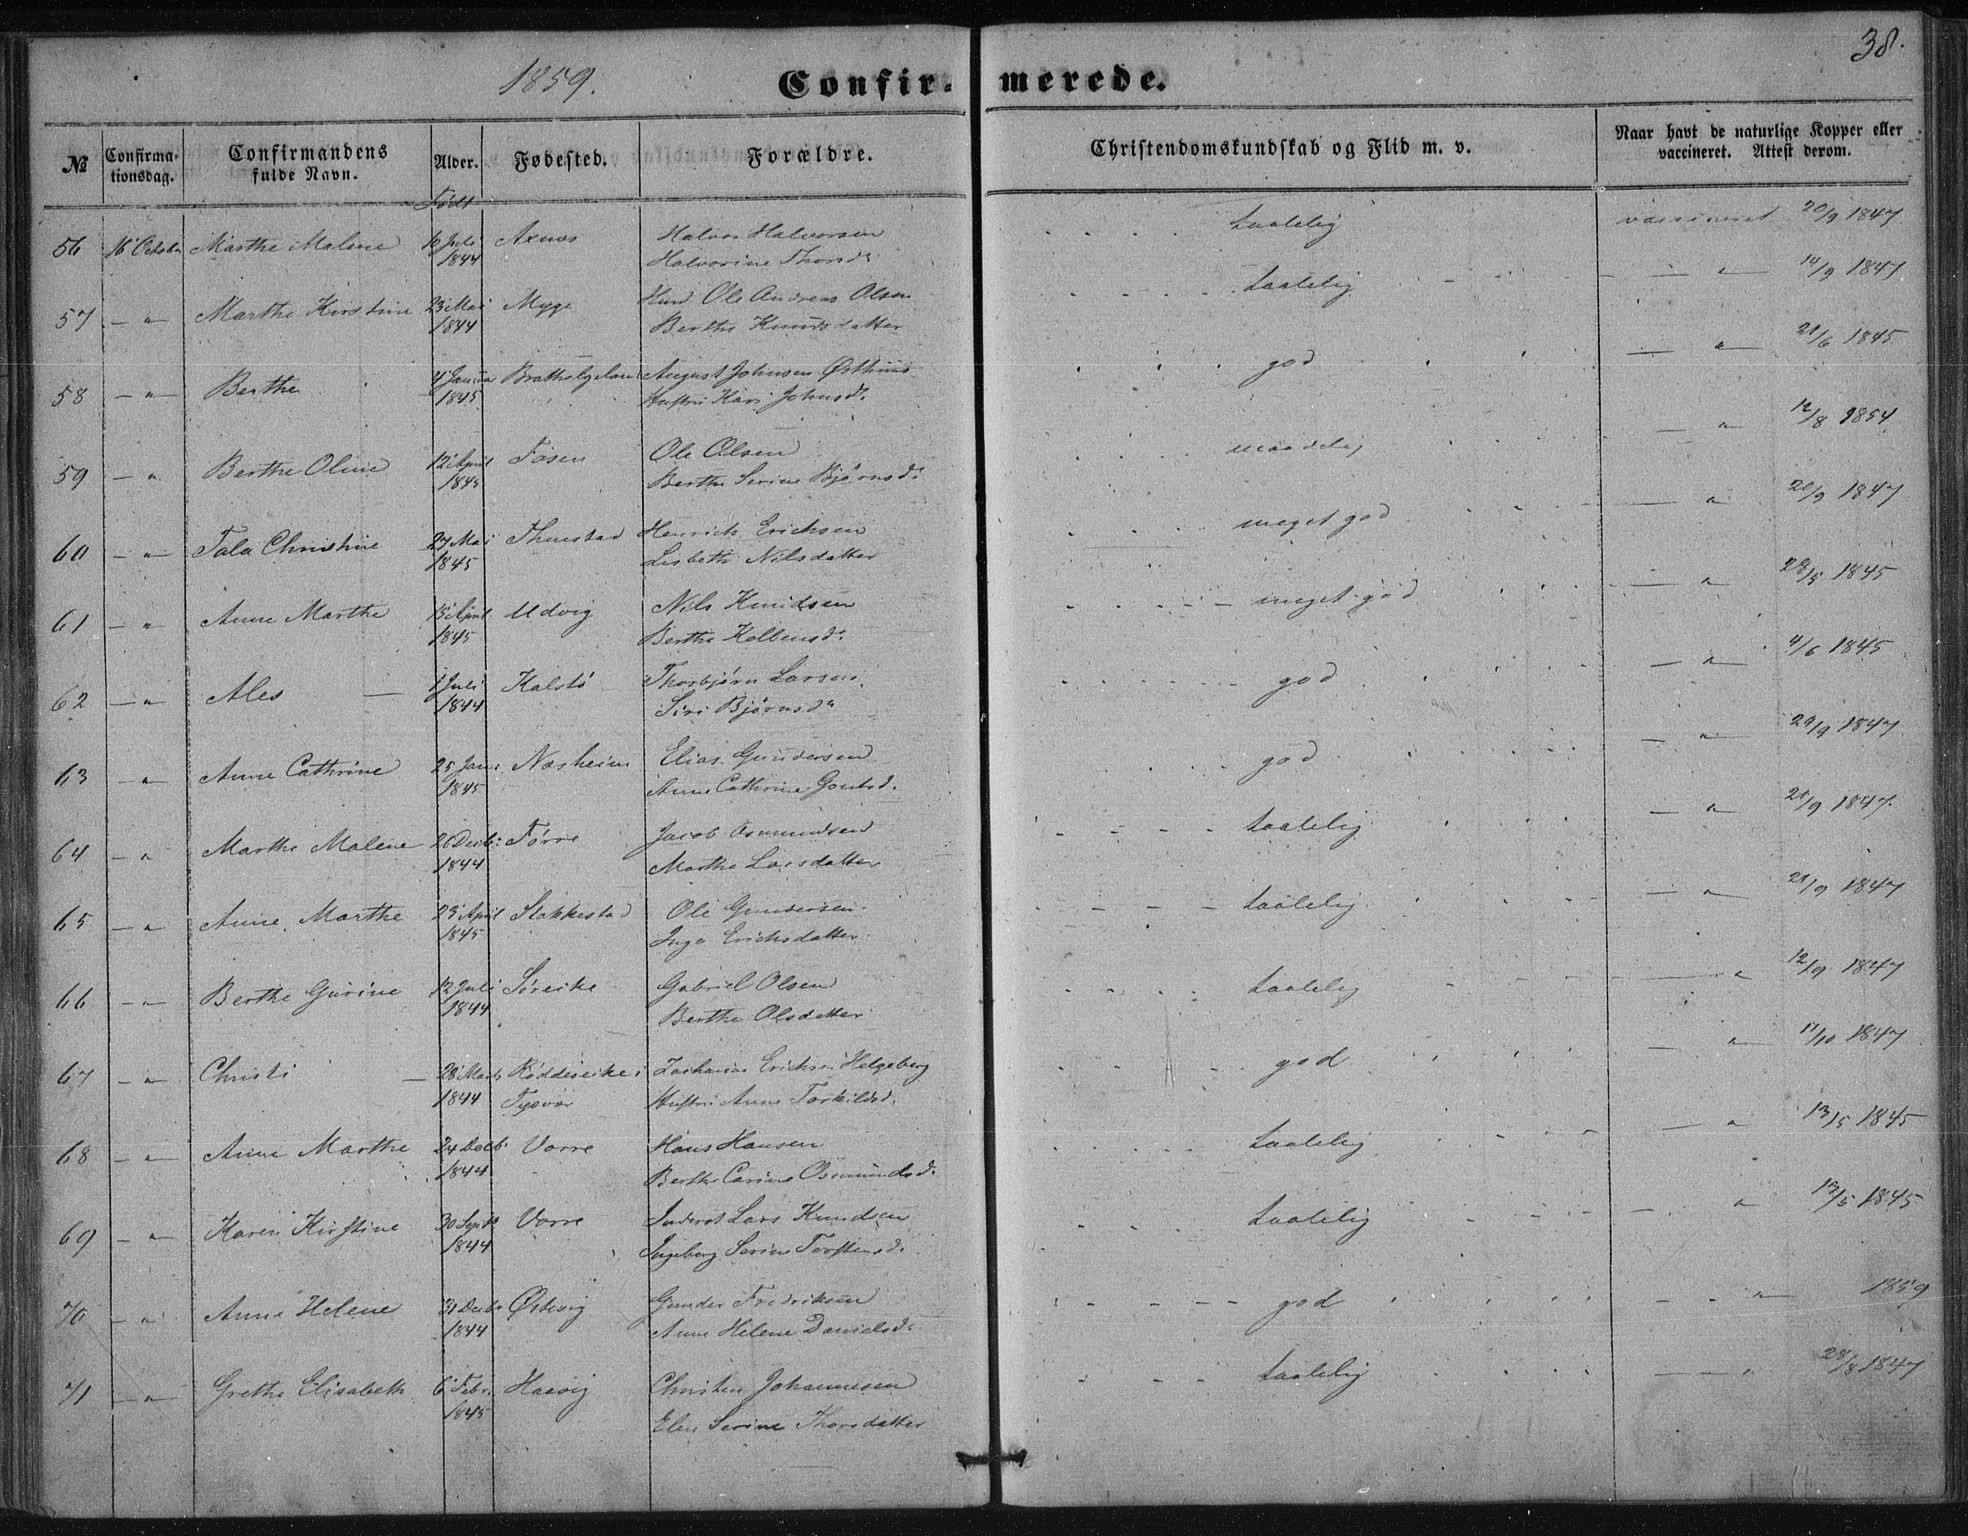 1859.
Confirmerede.
38.
№
Confirmationsdag.
Confirmandens fulde Navn.
Alder.
Fødested.
Forældre.
Christendomskundskab og Flid m. v.
Naar havt de naturlige Kopper eller vaccineret. Attest derom.
Født
56 16 October Marthe Malene Juli 1844 Axnes Halvor Halvorsen taalelig vaccineret 20/9 1847
Halvorine Thorsdr
57 — " Marthe Kirstine 23 Mai 1844 Myge Ole Andreas Olsen taalelig — " — 14/9 1847
Berthe Knudsdatter
58 — " Berthe 4 Janua 1845 August Johnsen Østhuus god — " — 21/6 1845
Hustru Kari Johnsd.
59 — " Berthe Oline 12 April 1845 Føsen Ole Olsen maadelig — " — 12/8 1854
Berthe Serine Bjørnsd.
60 — " Tala Christine 27 Mai 1845 Thuestad Henrich Erichsen meget god — " — 20/9 1847
Lisbeth Nilsdatter
61 — " Anne Marthe 15 April 1845 Udvig Nils Knudsen meget god — " — 28/5 1845
Berthe Kolbensd.
62 — " Ales — 1 Juli 1844 Kalstø Thorbjørn Larsen god — " — 4/6 1845
Siri Bjørnsdr
63 " Anne Cathrine 25 Jan. 1845 Næsheim Elias Gundersen god — " — 29/9 1847
Anne Cathrine Goutsd.
64 — " Marthe Malene 26 Decb: 1844 Førre Jacob Osmundsen taalelig — " — 21/9 1847
Marthe Larsdatter
65 — " Anne Marthe 23 April 1845 Stakkestad Ole Gundersen taalelig — " — 21/9 1847
Inga Erichsdatter
66 — " Berthe Gurine 12 Juli 1844 Søreike Gabriel Olsen taalelig — " 12/9 1847
Berthe Olsdatter
67 — " Christi — 28 Marts 1844 Røddeseike i Tysvær Zacharias Erichsen Helgeberg god — " 11/10 1847
Hustru Anne Torkildsd.
68 — " Anne Marthe 24 Decb. 1844 Vorre Hans Hansen taalelig — " 13/5 1845
Berthe Carine Osmundsd.
69 — " Karen Kirstine 30 Septb 1844 Vorre Inderst Lars Knudsen taalelig — " 13/5 1845
Ingeborg Serine Torstensd.
70 " Anne Helene 31 Decbr 1844 Østevig Gunder Fredriksen god — " — 1859
Anne Helene Danielsd.
71 — " Grethe Elisabeth 6 Febr. 1845 Haavig Christen Johannesen taalelig — " 28/8 1847
Elen Serine Thorsdatter